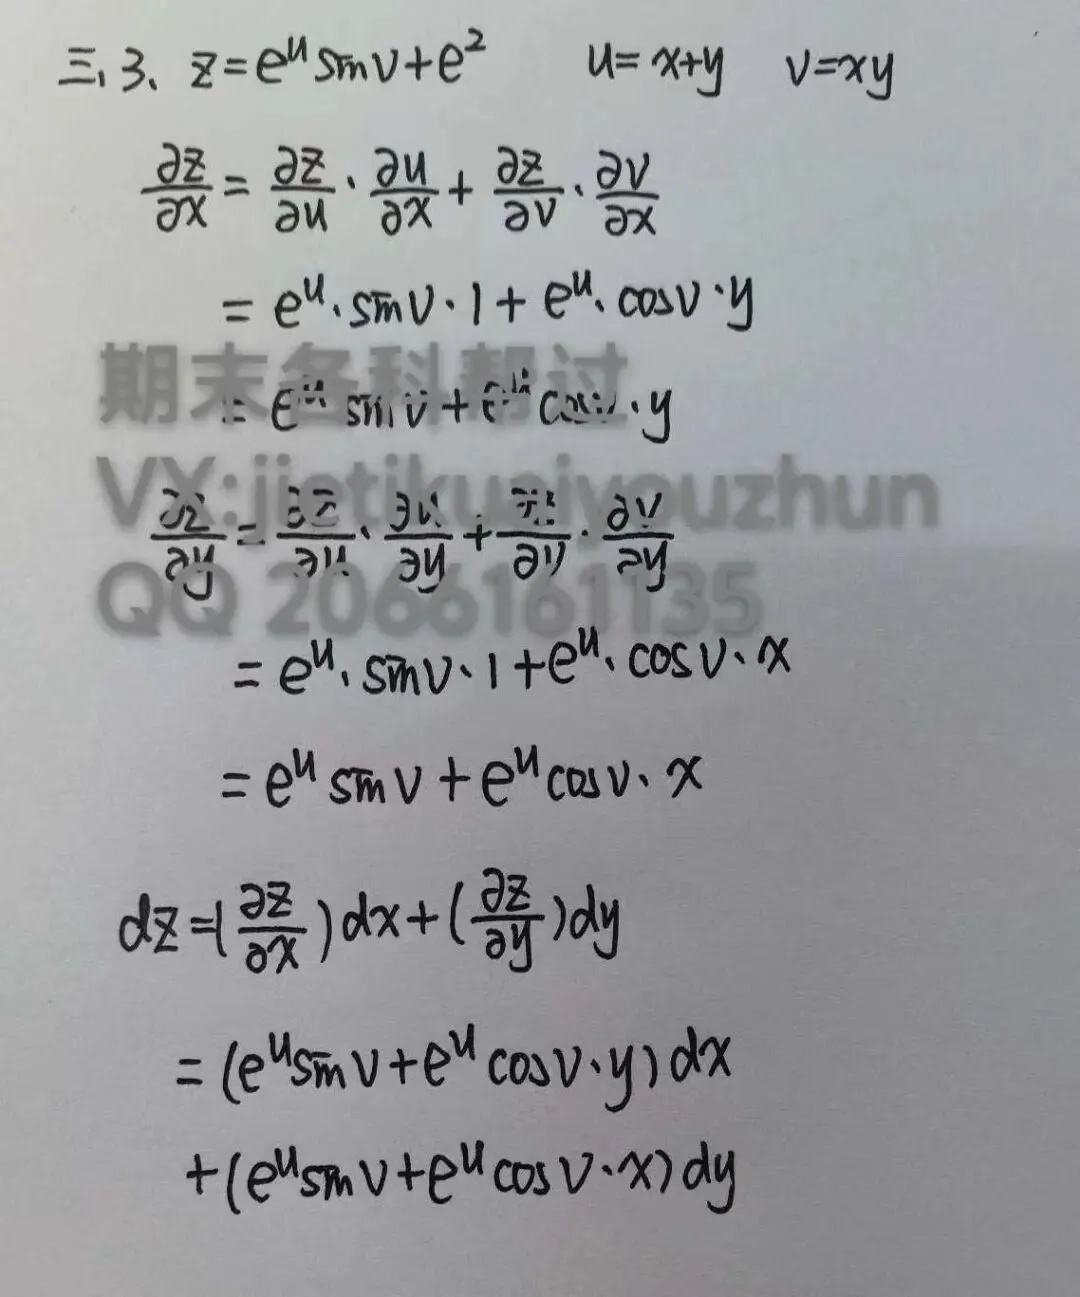 三、3、 z=e^u sinv+e^2 u=x+y v=xy
∂z/∂x = ∂z/∂u · ∂u/∂x + ∂z/∂v · ∂v/∂x
= e^u · sinv · 1 + e^u · cosv · y
期末各科帮过
= e^u sinv + e^u cosv · y
VX:jietikuaiyouzhun
∂z/∂y = ∂z/∂u · ∂u/∂y + ∂z/∂v · ∂v/∂y
QQ 2066161135
= e^u · sinv · 1 + e^u · cosv · x
= e^u sinv + e^u cosv · x
dz=(∂z/∂x)dx+(∂z/∂y)dy
= (e^u sinv+e^u cosv·y)dx
+(e^u sinv+e^u cosv·x)dy